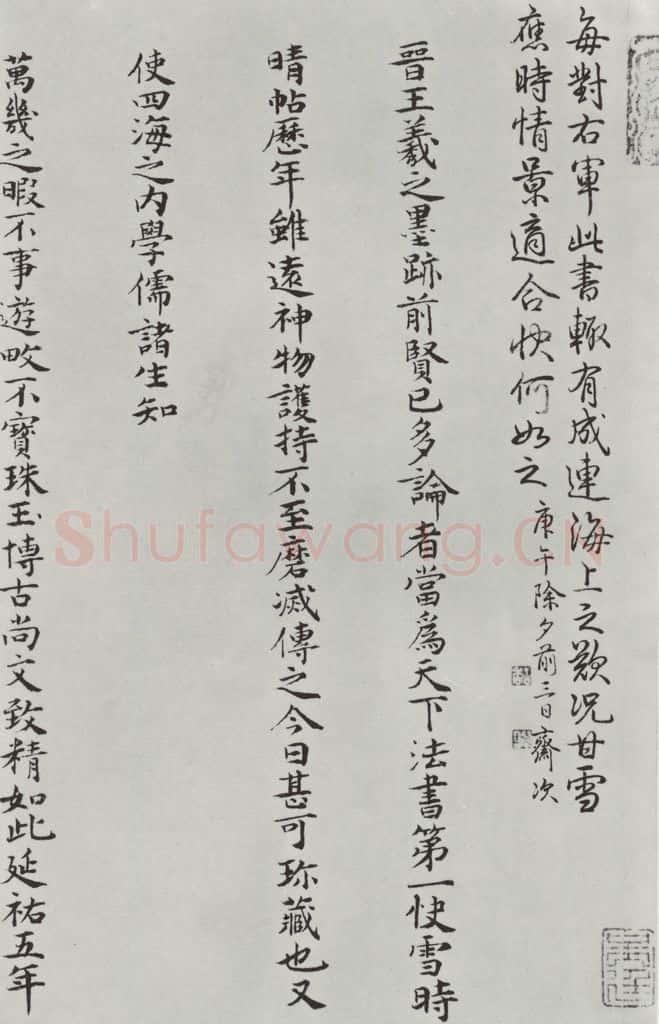 每對右軍此書輙有成連海上之歎況甘雪
應時情景適合快何如之 庚午除夕前三日齋次
晉王羲之墨跡前賢已多論者當爲天下法書第一快雪時
晴帖歷年雖遠神物護持不至磨滅傳之今日甚可珎藏也又
使四海之内學儒諸生知
萬幾之暇不事遊畋不寶珠玉博古尚文致精如此延祐五年
Shufawang.CN